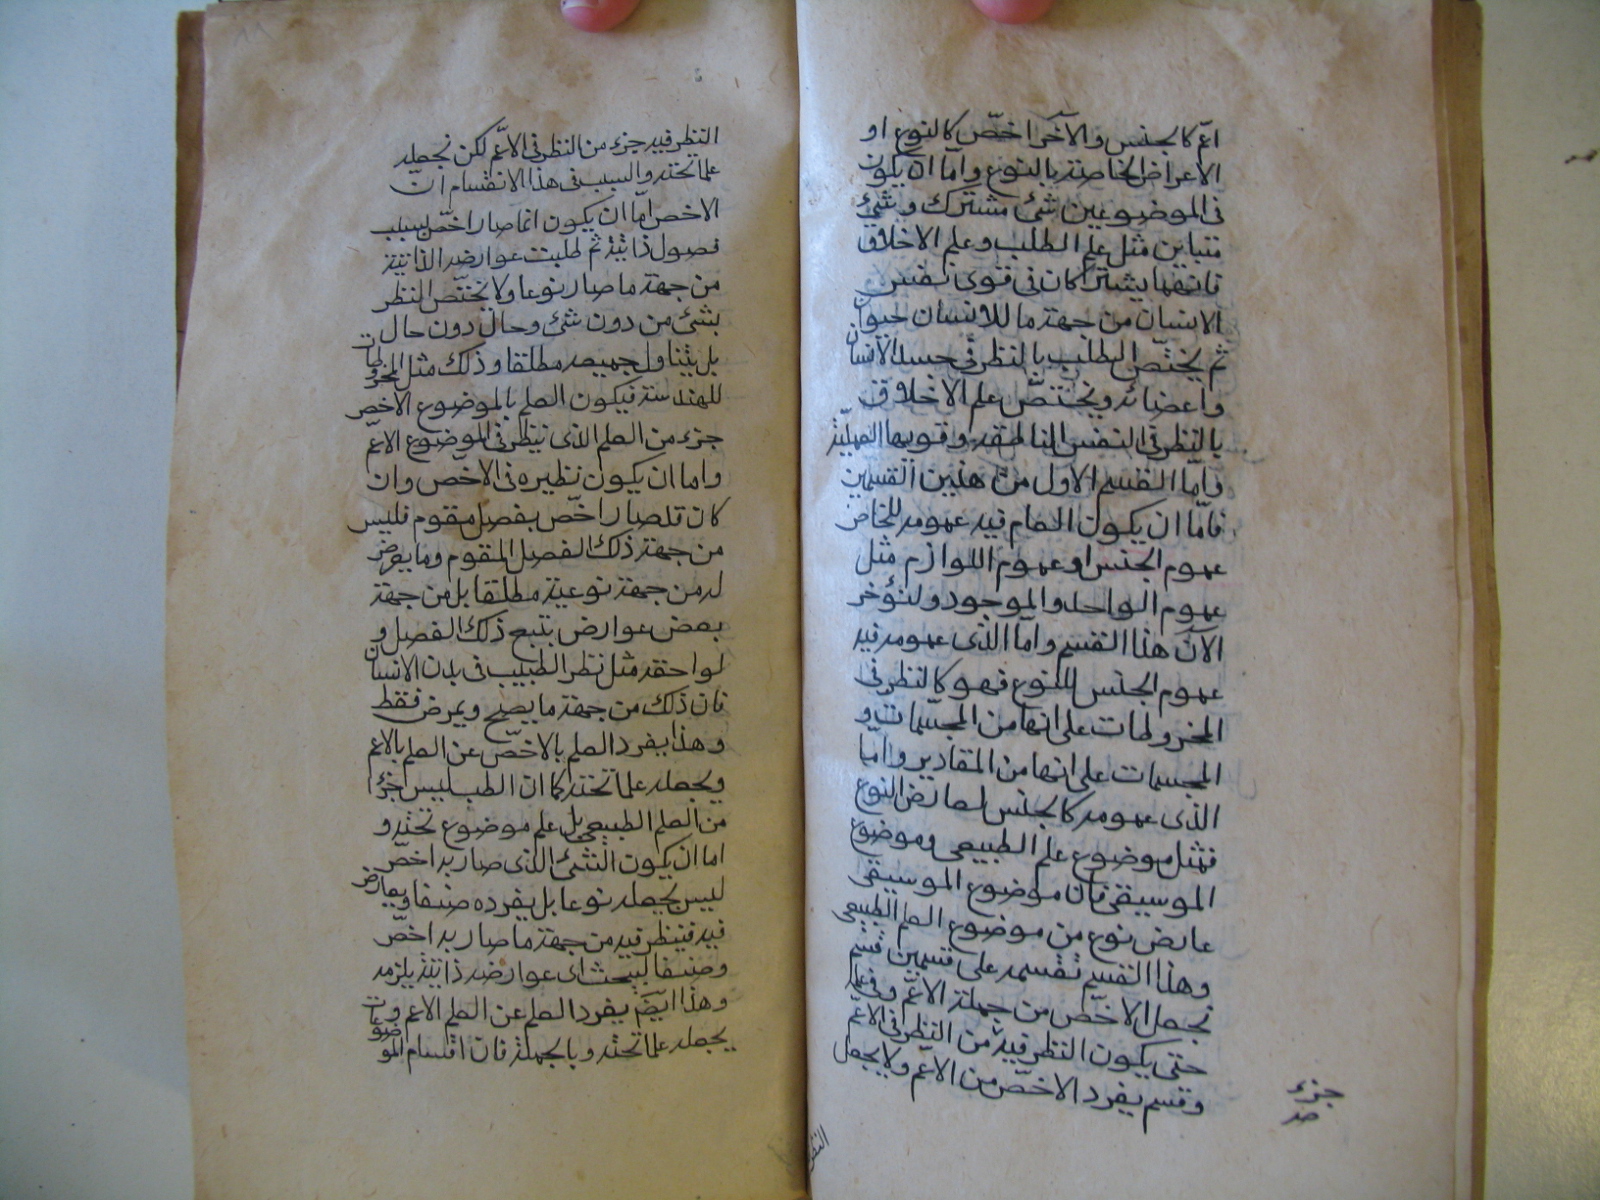 اعمّ كالجنس والآخر اخصّ كالنوع او
الاعراض الخاصة بالنوع وامّا ان يكون
فى الموضوعين شئ مشترك وشئ
متباين مثل علم الطب وعلم الاخلاق
فانهما يشتركان فى قوى نفس
الانسان من جهة ما للانسان حيوان
ثم يختصّ الطب بالنظر فى جسد الانسان
واعضائه ويختصّ علم الاخلاق
بالنظر فى النفس الناطقة وقويها العمليّة
وامّا القسم الاول من هذين القسمين
فامّا ان يكون العام فيه عمومه للخاص
عموم الجنس او عموم اللوازم مثل
عموم الواحد والموجود ولنؤخر
الآن هذا القسم وامّا الذى عمومه فيه
عموم الجنس للنوع فهو كالنظر فى
المخروطات على انها من المجسّمات و
المجسمات على انها من المقادير وامّا
الذى عمومه كالجنس لعارض النوع
فمثل موضوع علم الطبيعى وموضوع
الموسيقى فان موضوع الموسيقى
عارض نوع من موضوع العلم الطبيعى
وهذا القسم نقسمه على قسمين قسم
نجعل الاخصّ من جملة الاعمّ وفى علمه
حتى يكون النظر فيه من النظر فى الاعمّ
وقسم يفرد الاخصّ من الاعمّ ولا يجعل
جزء
صح
النظر
النظر فيه جزء من النظر فى الاعمّ لكن نجعله
علما تحته والسبب فى هذا الانقسام انّ
الاخص امّا ان يكون انما صار اخصّ بسبب
فصول ذاتية ثم طلبت عوارضه الذاتية
من جهة ما صار نوعا ولا يختصّ النظر
بشئ من دون شئ وحال دون حال
بل يتناول جميعه مطلقا وذلك مثل المخروطات
للهندسة فيكون العلم بالموضوع الاخص
جزء من العلم الذى ينظر فى الموضوع الاعمّ
واما ان يكون نظيره فى الاخصّ وان
كان قد صار اخصّ بفصل مقوم فليس
من جهة ذلك الفصل المقوم وما يعرض
له من جهة نوعية مطلقا بل من جهة
بعض عوارض يتبع ذلك الفصل و
لواحقه مثل نظر الطبيب فى بدن الانسان
فان ذلك من جهة ما يصح ويمرض فقط
وهذا يفرد العلم بالاخصّ عن العلم بالاعم
ويجعله علما تحته كما ان الطب ليس جزءا
من العلم الطبيعى بل علم موضوع تحته و
اما ان يكون الشئ الذى صار به اخصّ
ليس يجعله نوعا بل يفرده صنفا ويعارض
فيه فينظر فيه من جهة ما صار به اخصّ
وصنفا ليبحث اى عوارض ذاتية يلزمه
وهذا ايضا يفرد العلم عن العلم الاعم و
يجعله علما تحته وبالجملة فان اقسام الموضوعات